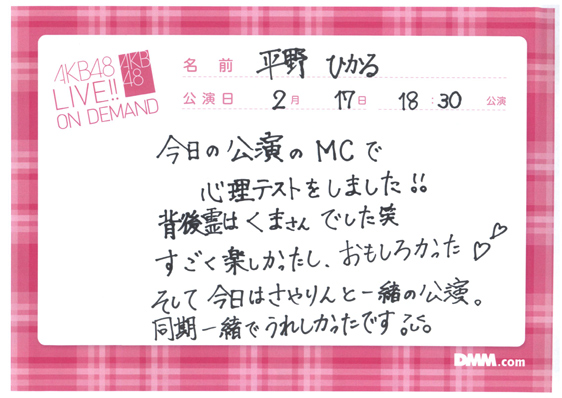 AKB48
LIVE!!
ON DEMAND
AKB
48
名前 平野 ひかる
公演日 2月 17日 18:30 公演
今日の公演のMCで
心理テストをしました!!
背後霊はくまさんでした笑
すごく楽しかったし、おもしろかった♡♡
そして今日はさやりんと一緒の公演。
同期一緒でうれしかったです
DMM.com